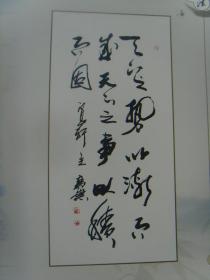 天下之勢以漸而
成天下之事以積
而固